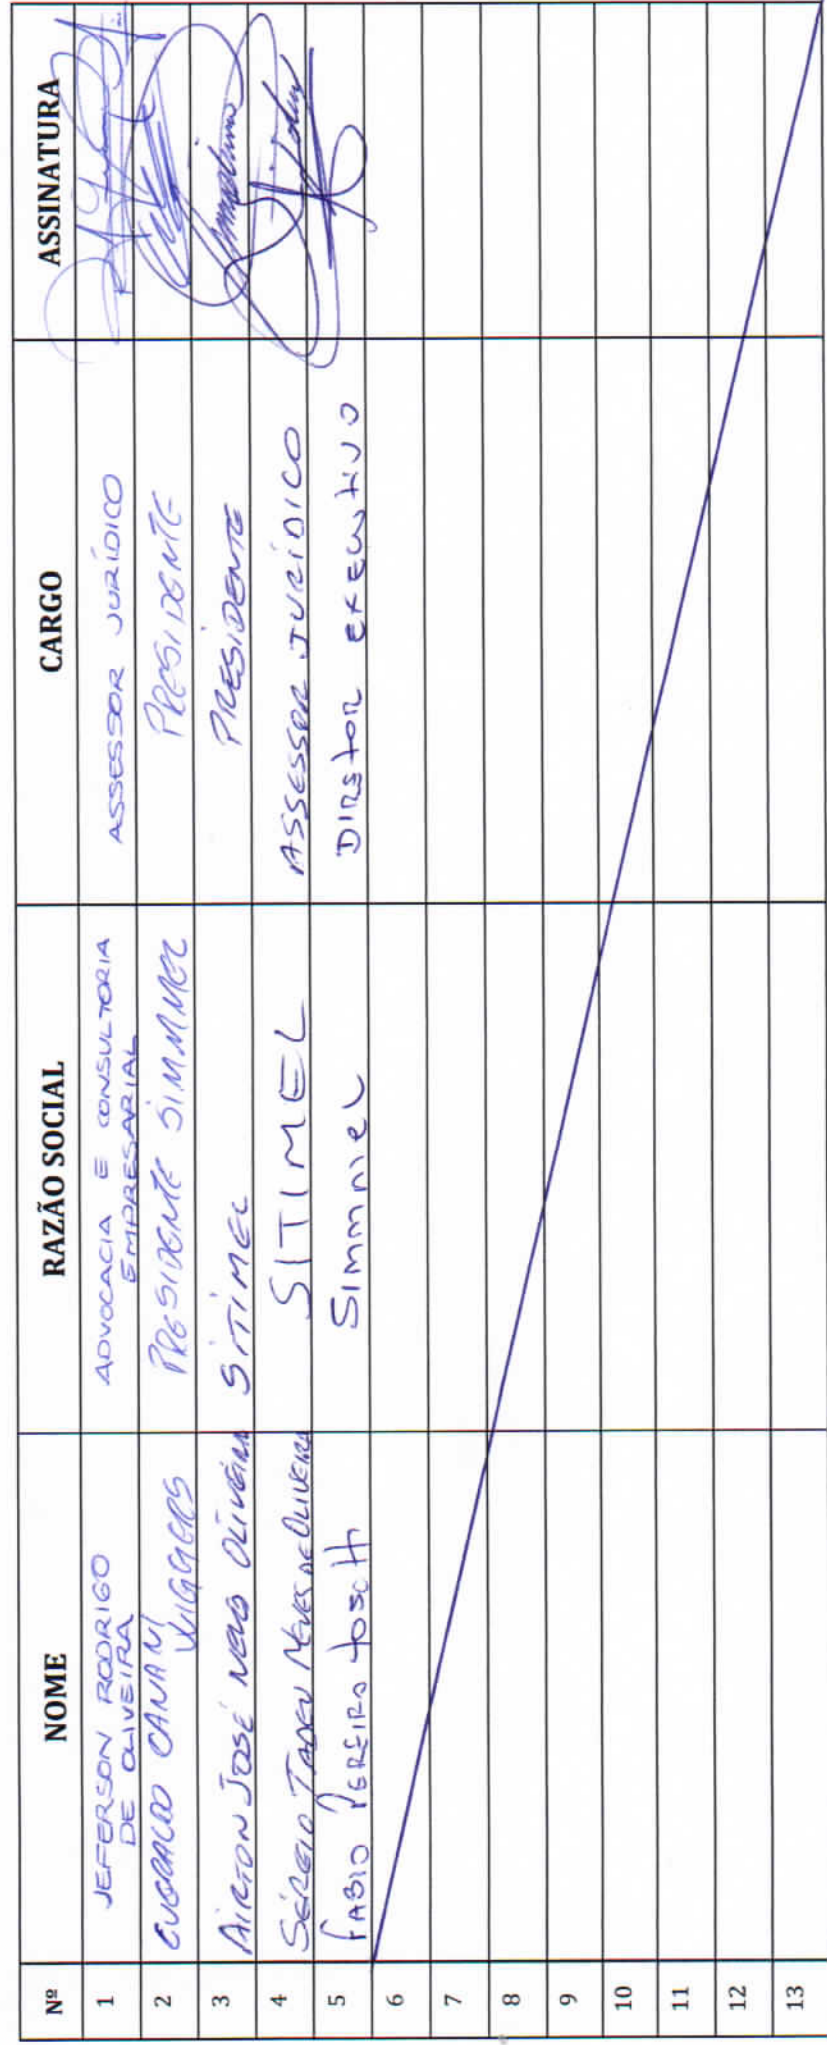 Nº NOME RAZÃO SOCIAL CARGO ASSINATURA
1 JEFERSON RODRIGO DE OLIVEIRA ADVOCACIA E CONSULTORIA EMPRESARIAL ASSESSOR JURÍDICO
2 EVERALDO CANANI WIGGERS PRESIDENTE SIMMMEL PRESIDENTE
3 AIRTON JOSÉ NEVES OLIVEIRA SITIMEL PRESIDENTE
4 SÉRGIO TADEU NEVES DE OLIVEIRA SITIMEL ASSESSOR JURÍDICO
5 FABIO PEREIRA SIMMMEL DIRETOR EXECUTIVO
6
7
8
9
10
11
12
13